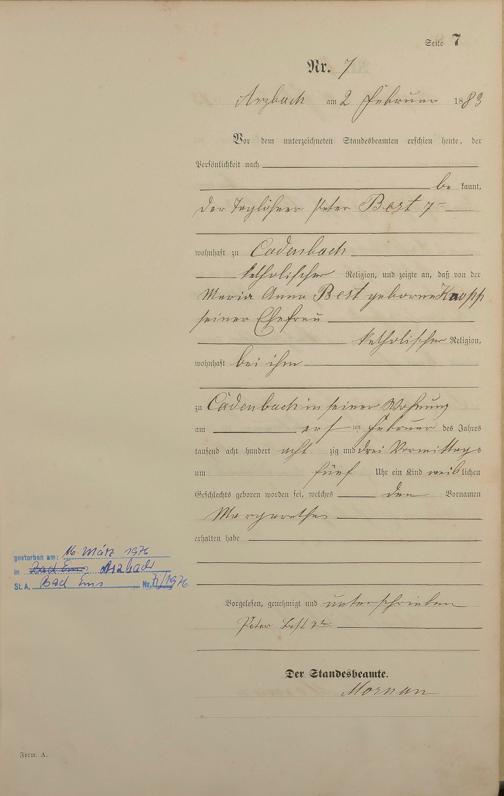 Seite 7
Nr. 7
Arzbach am 2 Februar 1883
Vor dem unterzeichneten Standesbeamten erschien heute, der
Persönlichkeit nach
be kannt,
der Taglöhner Peter Best
wohnhaft zu Cadenbach
katholischer Religion, und zeigte an, daß von der
Maria Anna Best geborne Knopp
seiner Ehefrau
katholischer Religion,
wohnhaft bei ihm
zu Cadenbach in seiner Wohnung
am ten Februar des Jahres
tausend acht hundert acht zig und drei Vormittags
um fünf Uhr ein Kind weiblichen
Geschlechts geboren worden sei, welches den Vornamen
Margaretha
erhalten habe
gestorben am: 16 März 1976
in Bad Ems Arzbach
St. A. Bad Ems Nr. /1976
Vorgelesen, genehmigt und unterschrieben
Peter Best
Der Standesbeamte.
Form. A.